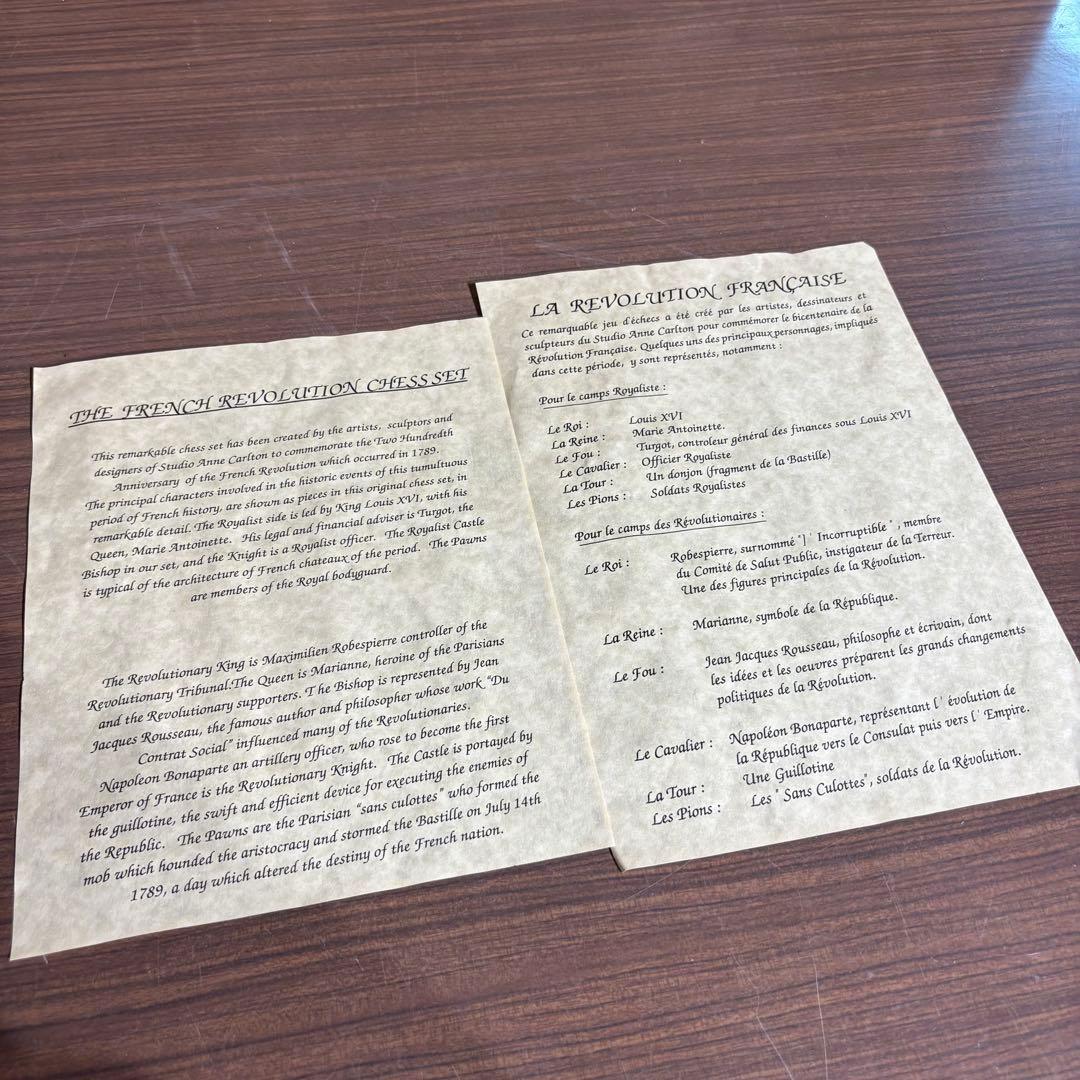 THE FRENCH REVOLUTION CHESS SET
This remarkable chess set has been created by the artists, sculptors and
designers of Studio Anne Carlton to commemorate the Two Hundredth
Anniversary of the French Revolution which occurred in 1789.
The principal characters involved in the historic events of this tumultuous
period of French history, are shown as pieces in this original chess set, in
remarkable detail. The Royalist side is led by King Louis XVI, with his
Queen, Marie Antoinette. His legal and financial adviser is Turgot, the
Bishop in our set, and the Knight is a Royalist officer. The Royalist Castle
is typical of the architecture of French chateaux of the period. The Pawns
are members of the Royal bodyguard.
The Revolutionary King is Maximilien Robespierre controller of the
Revolutionary Tribunal.The Queen is Marianne, heroine of the Parisians
and the Revolutionary supporters. T he Bishop is represented by Jean
Jacques Rousseau, the famous author and philosopher whose work "Du
Contrat Social" influenced many of the Revolutionaries.
Napoleon Bonaparte an artillery officer, who rose to become the first
Emperor of France is the Revolutionary Knight. The Castle is portayed by
the guillotine, the swift and efficient device for executing the enemies of
the Republic. The Pawns are the Parisian "sans culottes" who formed the
mob which hounded the aristocracy and stormed the Bastille on July 14th
1789, a day which altered the destiny of the French nation.
LA REVOLUTION FRANÇAISE
Ce remarquable jeu d'échecs a été créé par les artistes, dessinateurs et
sculpteurs du Studio Anne Carlton pour commémorer le bicentenaire de la
Révolution Française. Quelques uns des principaux personnages, impliqués
dans cette période, y sont représentés, notamment :
Pour le camps Royaliste :
Le Roi : Louis XVI
La Reine : Marie Antoinette.
Le Fou : Turgot, controleur général des finances sous Louis XVI
Le Cavalier : Officier Royaliste
La Tour : Un donjon (fragment de la Bastille)
Les Pions : Soldats Royalistes
Pour le camps des Révolutionaires :
Le Roi : Robespierre, surnommé "l ' Incorruptible " , membre
du Comité de Salut Public, instigateur de la Terreur.
Une des figures principales de la Révolution.
La Reine : Marianne, symbole de la République.
Le Fou : Jean Jacques Rousseau, philosophe et écrivain, dont
les idées et les oeuvres préparent les grands changements
politiques de la Révolution.
Le Cavalier : Napoléon Bonaparte, représentant l ' évolution de
la République vers le Consulat puis vers l ' Empire.
La Tour : Une Guillotine
Les Pions : Les " Sans Culottes", soldats de la Révolution.